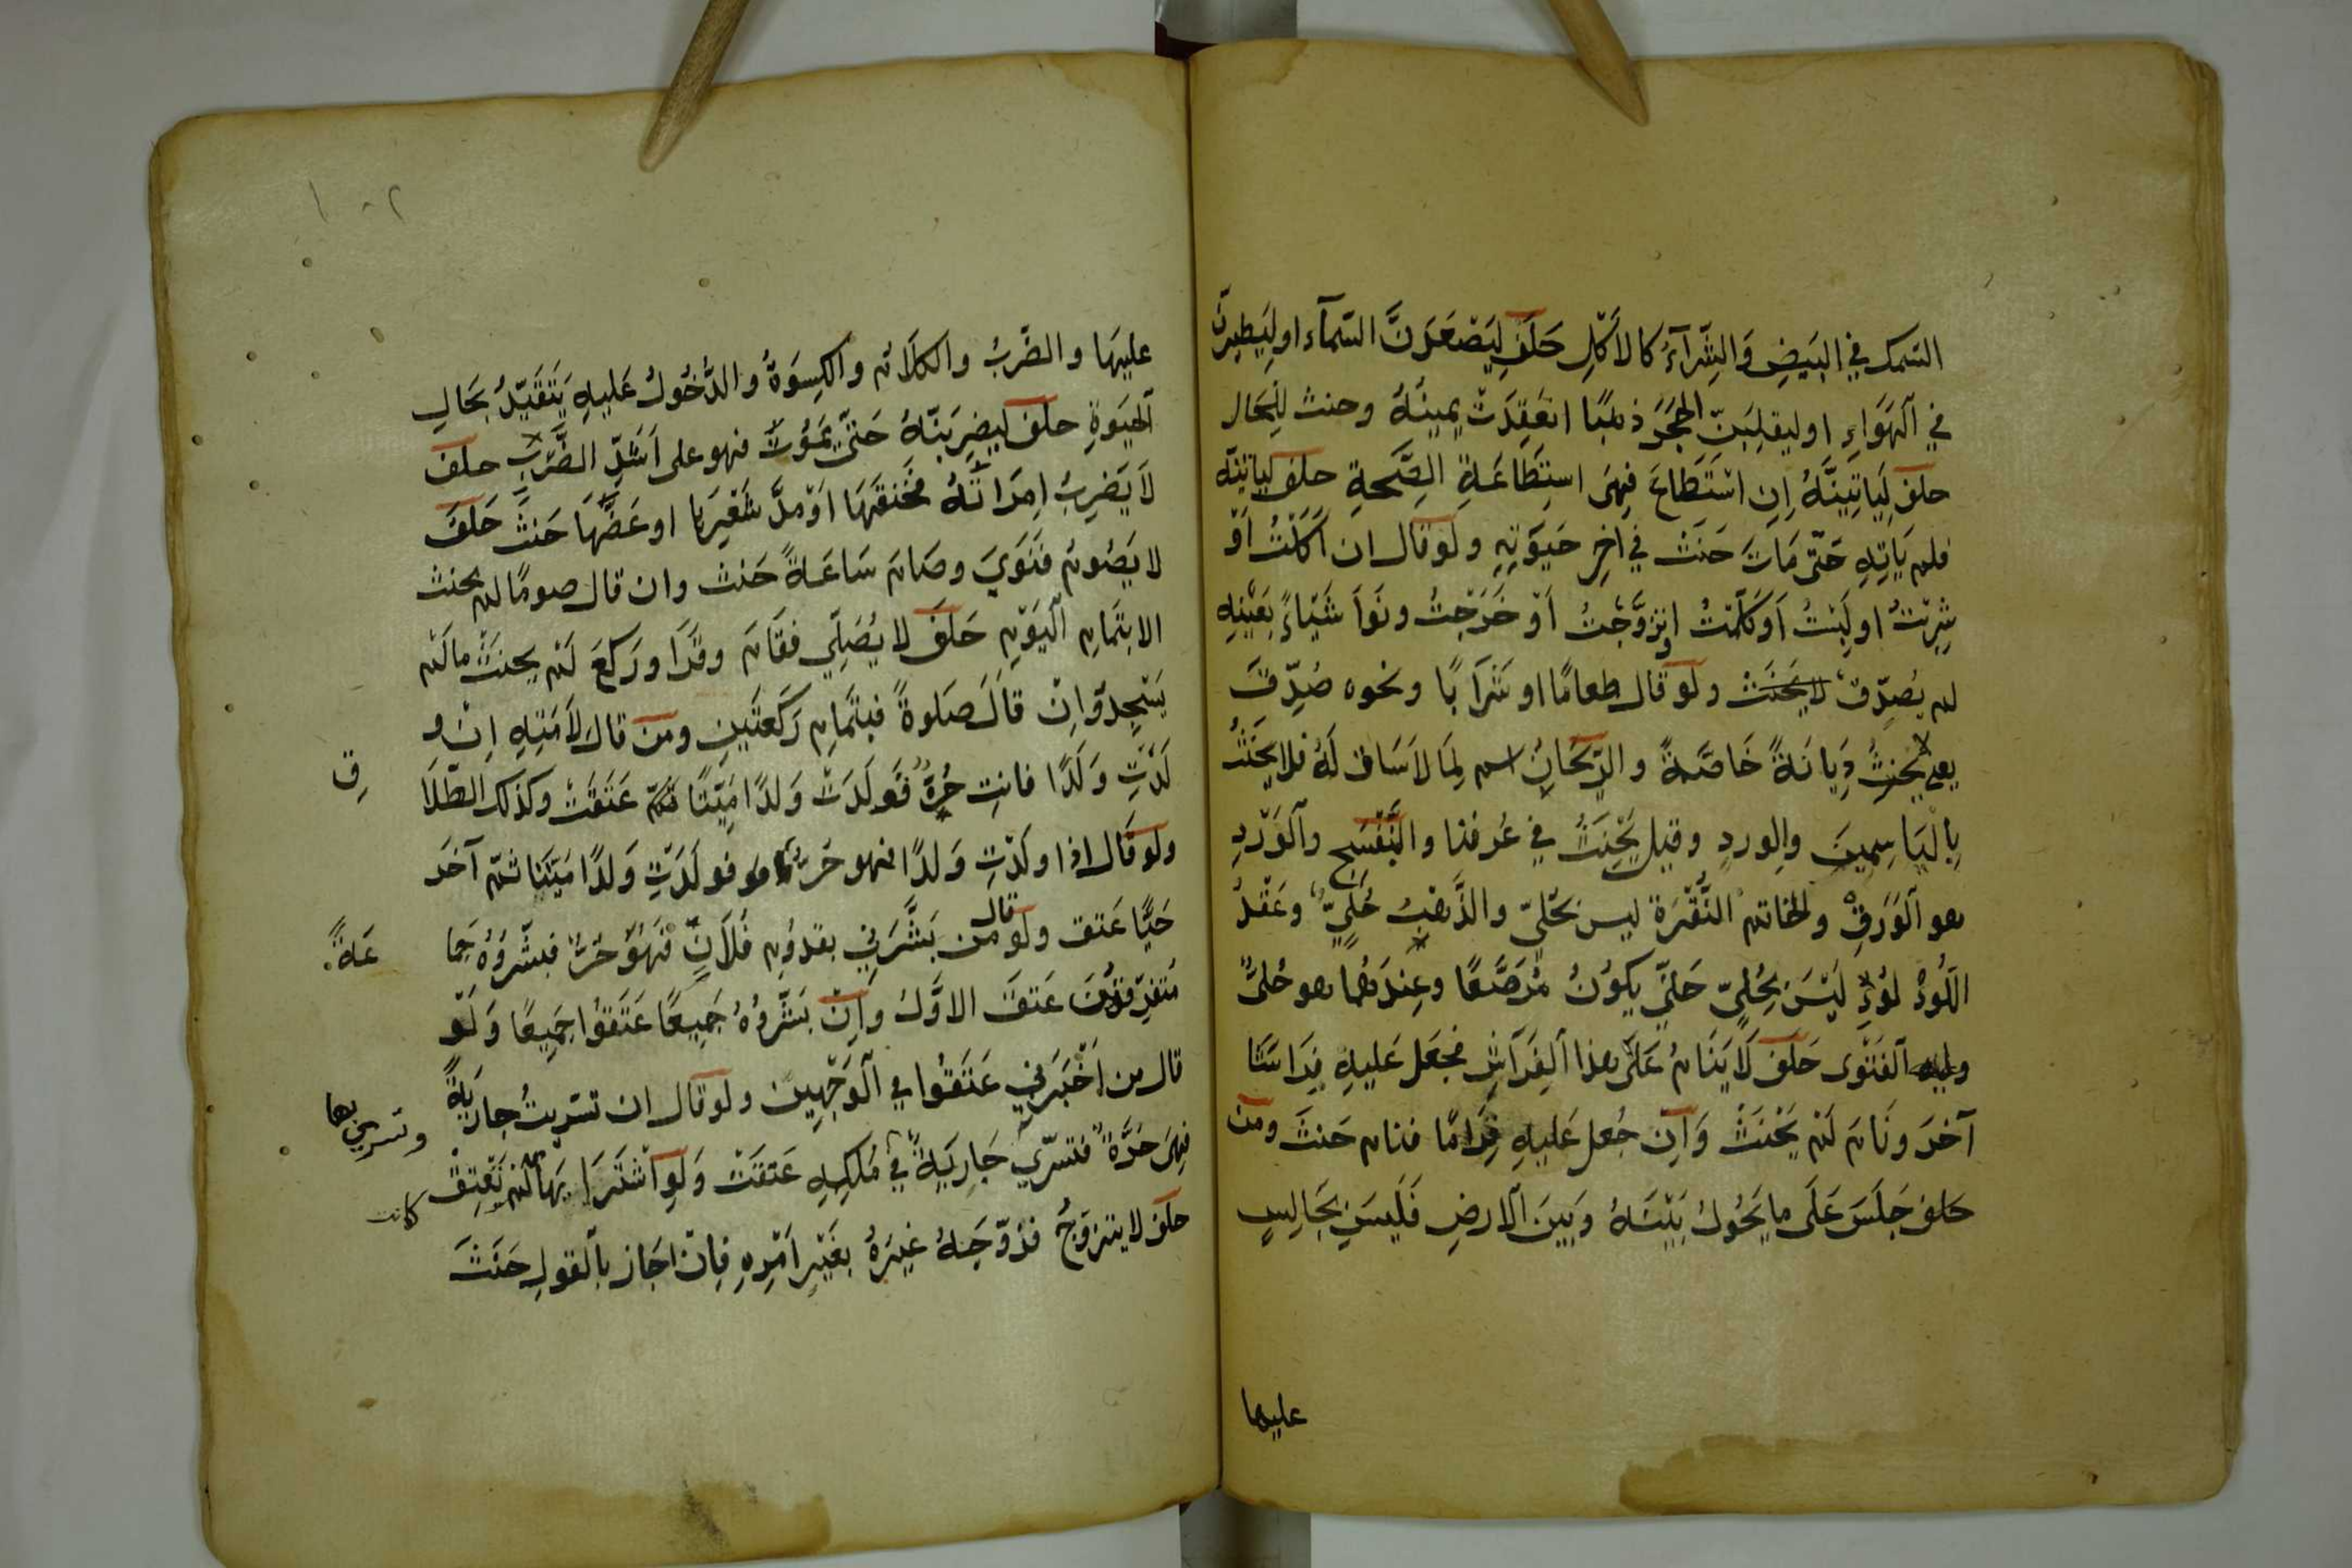 السمك في البَيضِ وَالشِّرَآءُ كالاَكْلِ حَلَفَ لَيَصْعَدَنَّ السَّمآء او لِيَطيرنَّ
في آلهَوَاءِ او ليقلِبَنّ الحَجَرَ ذهَبًا انعَقِدَتْ يمينُهُ وحنث للِحَال
حلف لَيَاتِيَنَّهُ اِن اسْتَطَاعَ فهِىَ اسِتِطَاعَةِ الصِّحةِ حلف لَياتينّه
فلم يَاتِهِ حَتّى مَاتَ حَنَثَ في اخِرِ حَيَوتِهِ ولو قال ان اَكَلْتُ اَوْ
شِرِبْتُ او لَبِسْتُ اَو كَلَّمْتُ اوتزوَّجْتُ اَوْ خَرَجْتُ ونَوَا شَيْاءً بعَيْنِهِ
لم يصدّق لا يَحْنَثْ ولو قال طعامًا او شَرابًا ونحوه صُدِّقَ
يعي يحنثُ دِيانَةً خَاصَّةً والرّيحَانِ اسم لِمَا لاَسَاق لَهُ فلا يحنَثُ
بِاليَاسِمينَ والوردِ وقيل يَحْنَثُ في عُرفنا والبَنَفْسَج والوَرْدِ
هو آلوَرَقِ والخاتم النُّقْرَة ليس بحُليّ والذَّهَبُ حُليّ وعَقْدُ
اللُّؤْلُؤِ لَيْسَ بحُليّ حَتّى يكوُنُ مُرَصَّعًا وعِندَهُما هو حُلىّ
وعليه الفَتْوى حَلَفَ لَا يَنَامُ عَلَى هذا آلفِرَآشِ فجعَل عَليهِ فِراشًا
آخرَ ونَامَ لَمْ يَحْنَثْ وَاِن جُعل عَليهِ قِرَامًا فنام حَنثَ ومن
حلف جَلَسَ عَلَى ما يَحُولُ بَيْنَهُ وَبينَ آلارضِ فَلَيسَ بجَالِسٍ
عليها
١٠٢
عليهَا والضَّربُ والكلاَمُ والكِسوَةُ والدُّخُولُ عَليهِ يَتَقَيّدُ بحَالِ
الحَيَوةِ حلف ليضرِبَنّهُ حَتّى يَمُوْتَ فهو على اَشَدِّ الضَّربِ حلف
لاَ يَضرِبُ امرَاتَهُ فخَنقَهَا اَوْ مدّ شَعْرَهَا او عَضَّهَا حَنثَ حَلَفَ
لا يَصُومُ فنَوَيَ وصَامَ سَاعَةً حَنث وان قال صومًا لم يحنث
الا بتَمامِ آليَوْمِ حَلفَ لا يُصَلّي فقَامَ وقَرَا ورَكَعَ لَم يحنثْ ما لَم
يَسْجدْ وَاِنْ قاَلَ صَلوةً فبتَمامِ رَكَعتَينِ ومن قال لاَمَتِهِ اِن وُ
لَدْتِ وَلَدًا فانتِ حُرّةٌ فَولَدَتْ وَلدًا مَيّتًا ثمّ عَتَقَتْ وكذلك الطّلاَ
ق
ولو قال اذا ولَدْتِ وَلدًا فهو حُرٌّ فولَدَتِ وَلدًا مَيّتًا ثمّ آخَر
حَيًّا عَتق ولو قال من بَشَّرَني بقدُومِ فُلاَنٍ فَهُوَ حُرٌّ فبشَّرُوُه جَما
عَةً
مُتفرّقوُنَ عَتَقَ الاَوَّلُ وَاِنْ بَشَّرُوُهُ جَميعًا عَتَقوُا جَمِيعًا وَلَوْ
قال من اَخْبَرني عَتَقُوا في الوَجْهينَ ولو قال ان تسَرّيتُ جاريَةً
فهِىَ حُرَّةً فتسَرّي جَاريَةً في مُلكِهِ عَتقَتْ وَلَوِ اشْتَرَا بهَا لَم تَعْتِقْ
وتسري بها
كانت
حلَفَ لا يتزوّجُ فزوّجَهُ غيرُهُ بغَيْرِ اَمْرِهِ فاِنْ اجَاز بالقولِ حَنَثَ